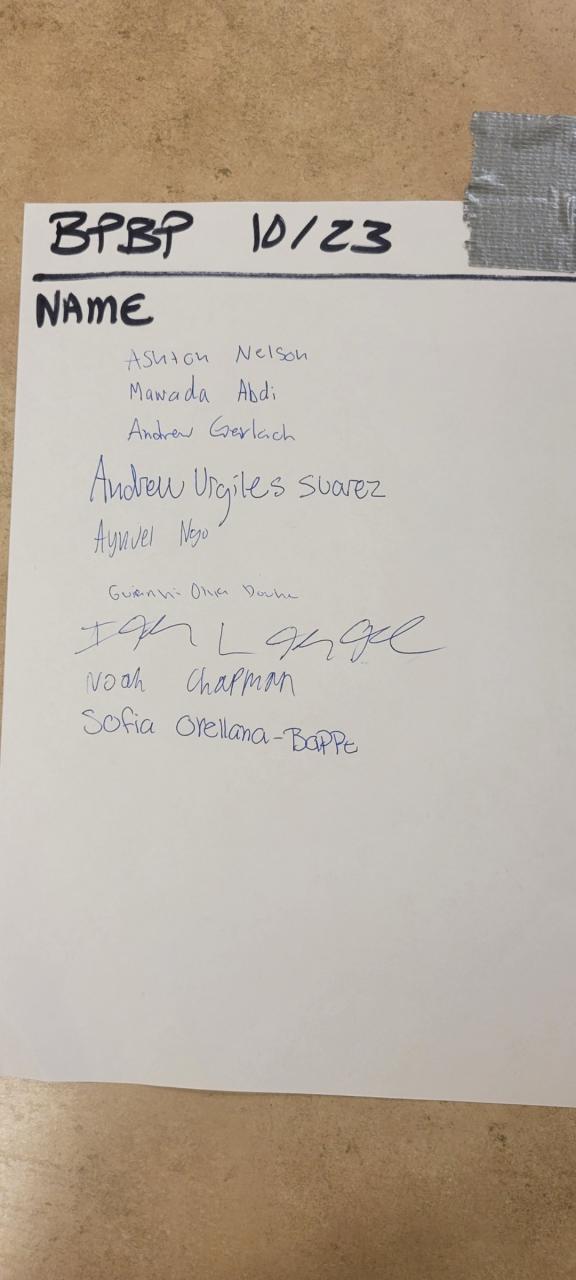 BPBP 10/23
NAME
Ashton Nelson
Mawada Abdi
Andrew Gerlach
Andrew Urgiles Suarez
Ngo
Noah Chapman
Sofia Orellana-Bappe